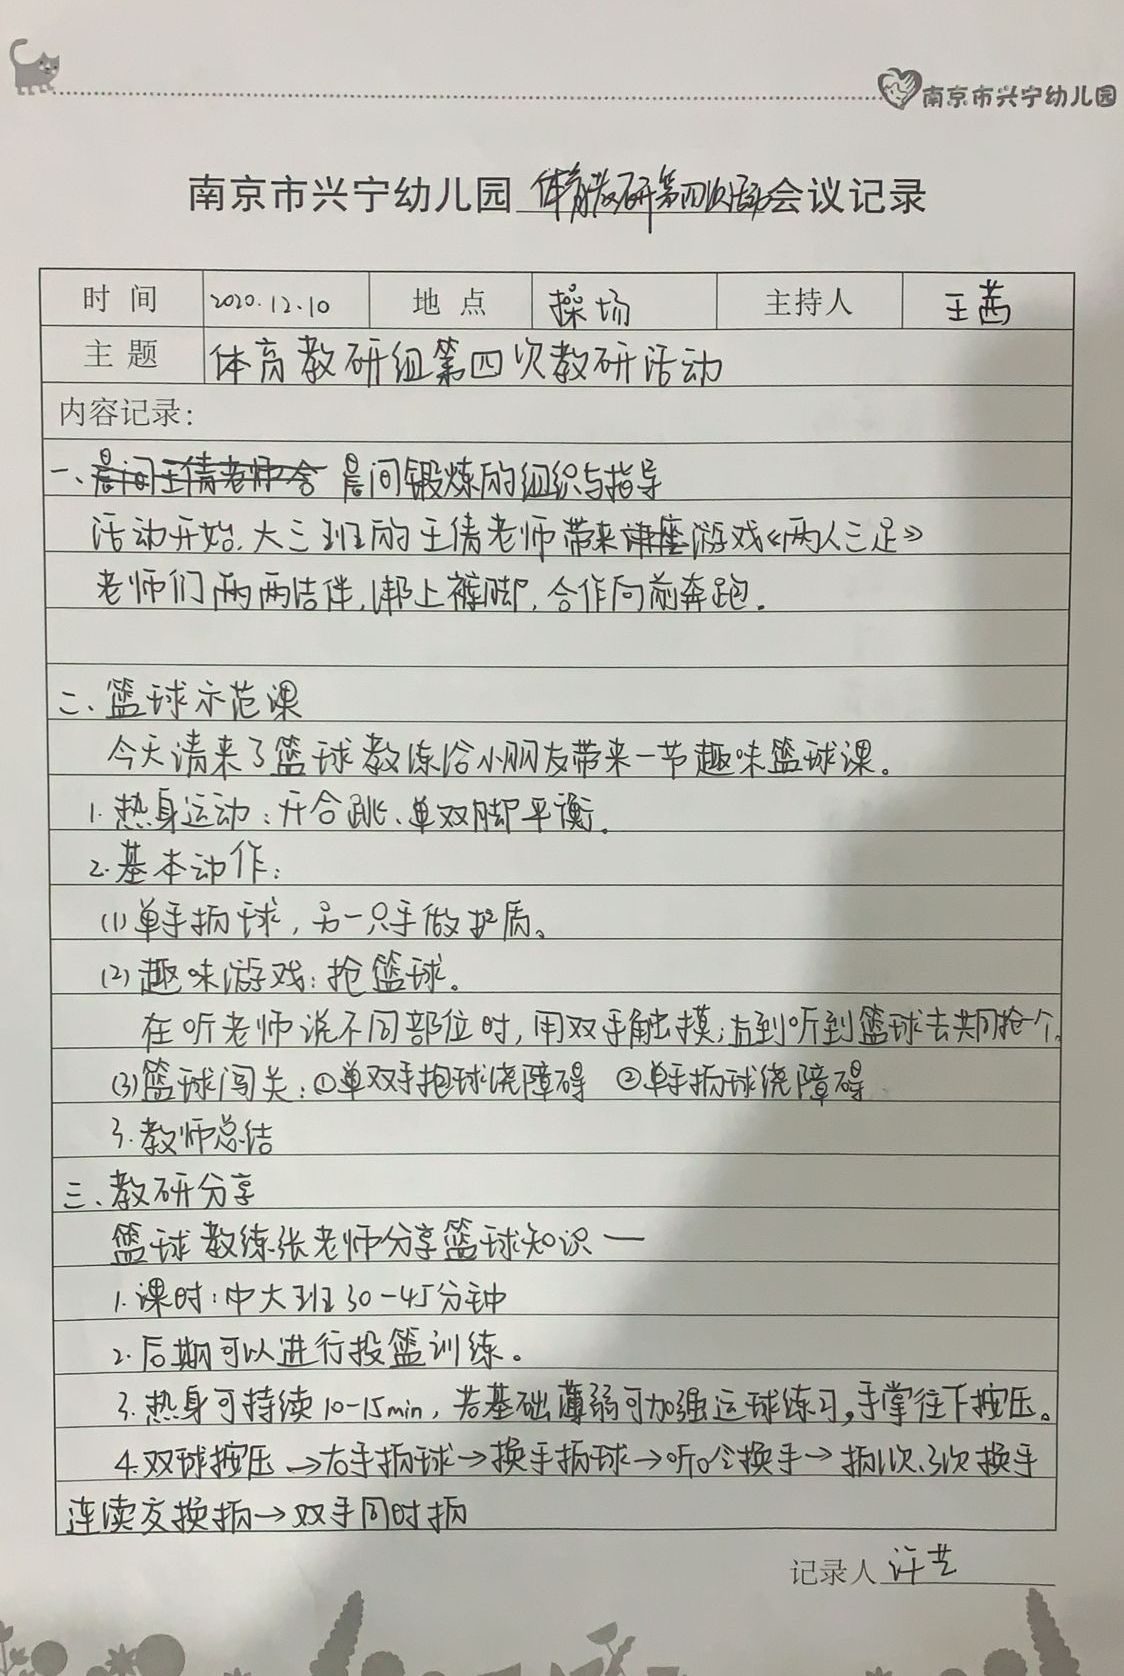 南京市兴宁幼儿园
南京市兴宁幼儿园 体育教研第四次活动 会议记录
时间 2020.12.10 地点 操场 主持人 王茜
主题 体育教研组第四次教研活动
内容记录：
一、晨间王倩老师含 晨间锻炼的组织与指导
活动开始，大三班的王倩老师带来讲座游戏《两人三足》
老师们两两结伴，绑上裤脚，合作向前奔跑。
二、篮球示范课
今天请来了篮球教练给小朋友带来一节趣味篮球课。
1.热身运动：开合跳、单双脚平衡。
2.基本动作：
(1)单手拍球，另一只手做护盾。
(2)趣味游戏：抢篮球。
在听老师说不同部位时，用双手触摸；直到听到篮球去共同抢一个。
(3)篮球闯关：①单双手抱球绕障碍 ②单手拍球绕障碍
3.教师总结
三、教研分享
篮球教练张老师分享篮球知识一
1.课时：中大班30-45分钟
2.后期可以进行投篮训练。
3.热身可持续10-15min，若基础薄弱可加强运球练习，手掌往下按压。
4.双球按压→右手拍球→换手拍球→听口令换手→拍1次、3次换手
连续交换拍→双手同时拍
记录人 许艺